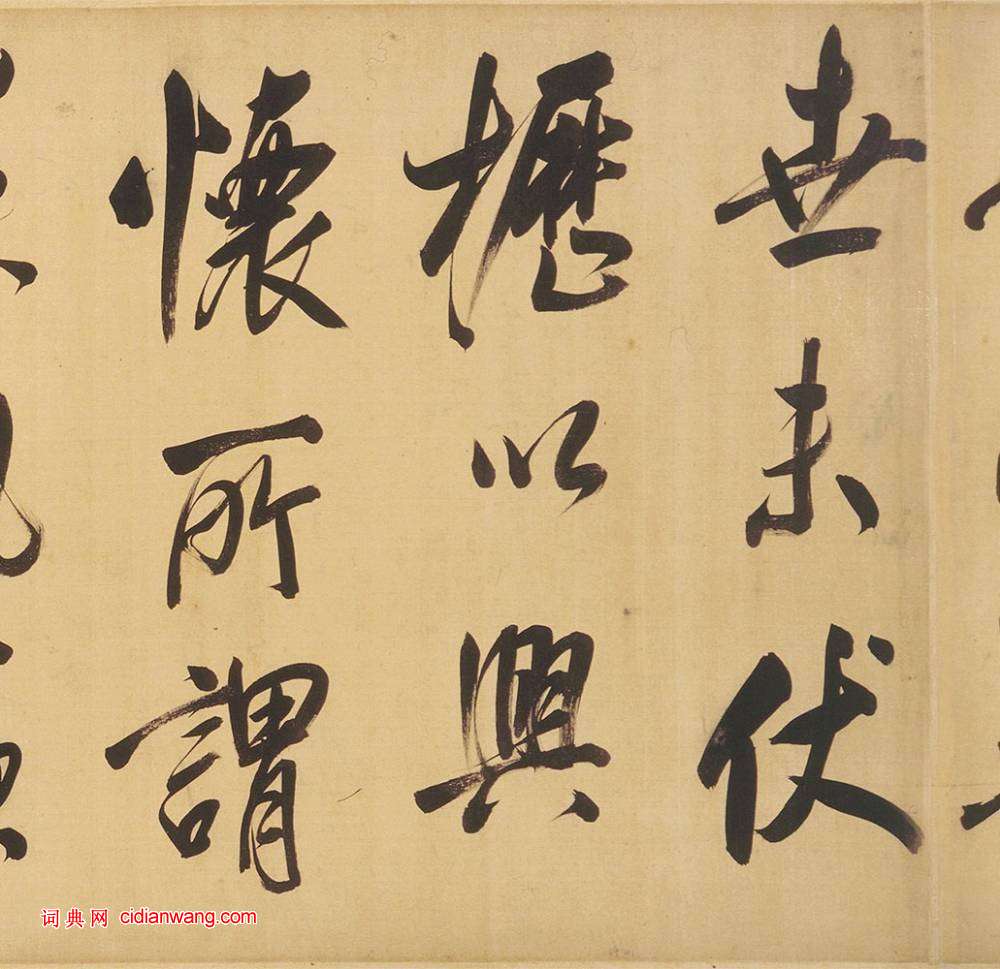 世未伏
櫪以興
懷所謂
词典网 cidianwang.com